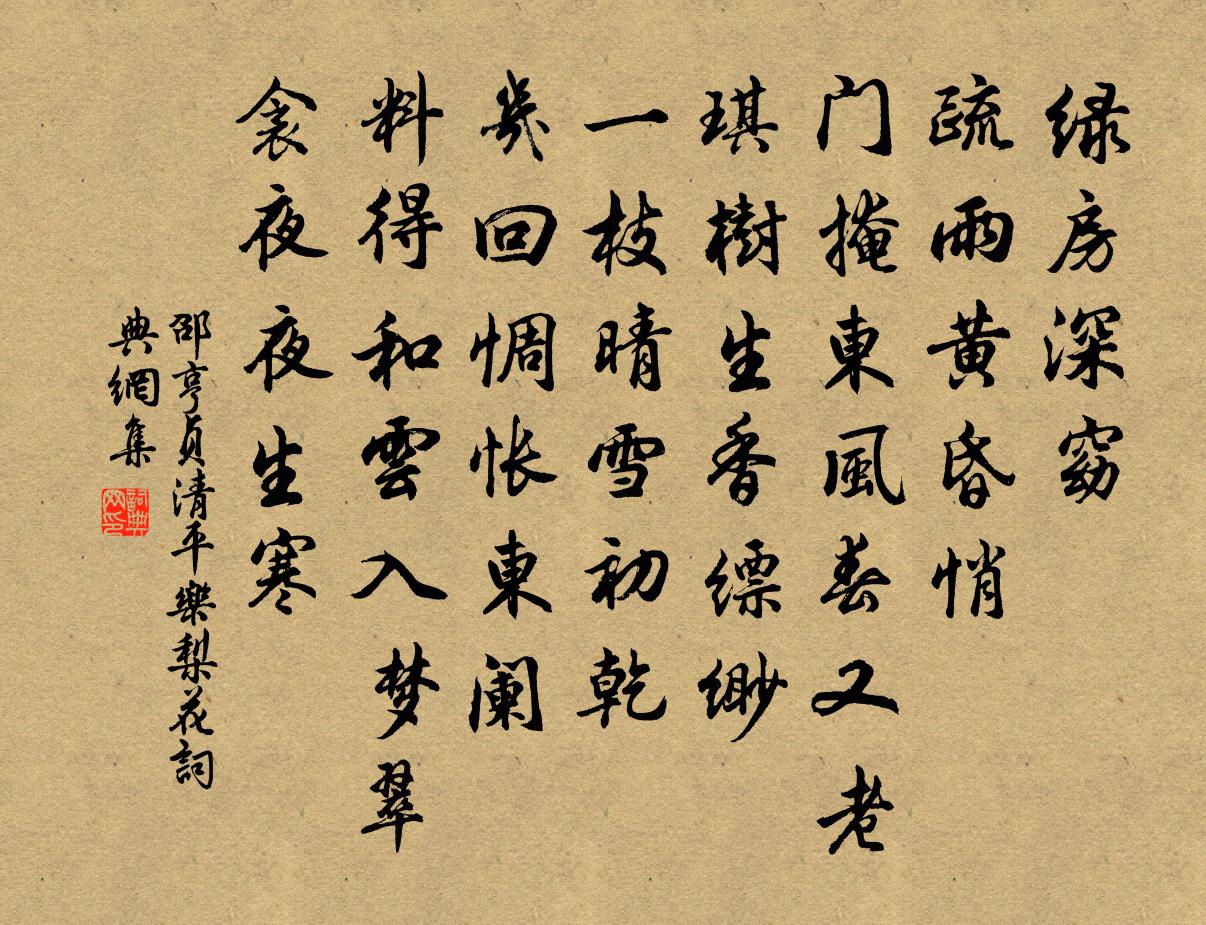 绿房深窈
疏雨黄昏悄
门掩東風春又老
琪樹生香縹缈
一枝晴雪初乾
幾回惆怅東阑
料得和雲入梦翠
衾夜夜生寒
邵亨貞清平樂梨花詞
典網集
詞典網印